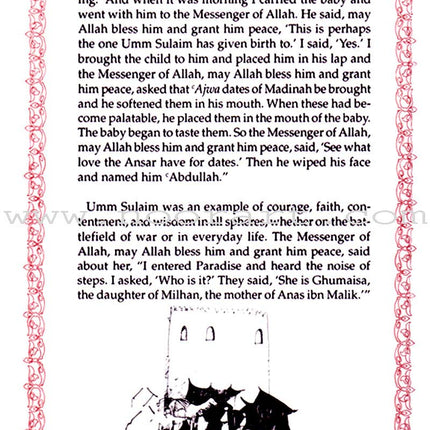 ing. And when it was morning I carried the baby and
went with him to the Messenger of Allah. He said, may
Allah bless him and grant him peace, ‘This is perhaps
the one Umm Sulaim has given birth to.’ I said, ‘Yes.’ I
brought the child to him and placed him in his lap and
the Messenger of Allah, may Allah bless him and grant
him peace, asked that ʿAjwa dates of Madinah be brought
and he softened them in his mouth. When these had be-
come palatable, he placed them in the mouth of the baby.
The baby began to taste them. So the Messenger of Allah,
may Allah bless him and grant him peace, said, ‘See what
love the Ansar have for dates.’ Then he wiped his face
and named him ʿAbdullah.”
Umm Sulaim was an example of courage, faith, con-
tentment, and wisdom in all spheres, whether on the bat-
tlefield of war or in everyday life. The Messenger of
Allah, may Allah bless him and grant him peace, said
about her, “I entered Paradise and heard the noise of
steps. I asked, ‘Who is it?’ They said, ‘She is Ghumaisa,
the daughter of Milhan, the mother of Anas ibn Malik.’”